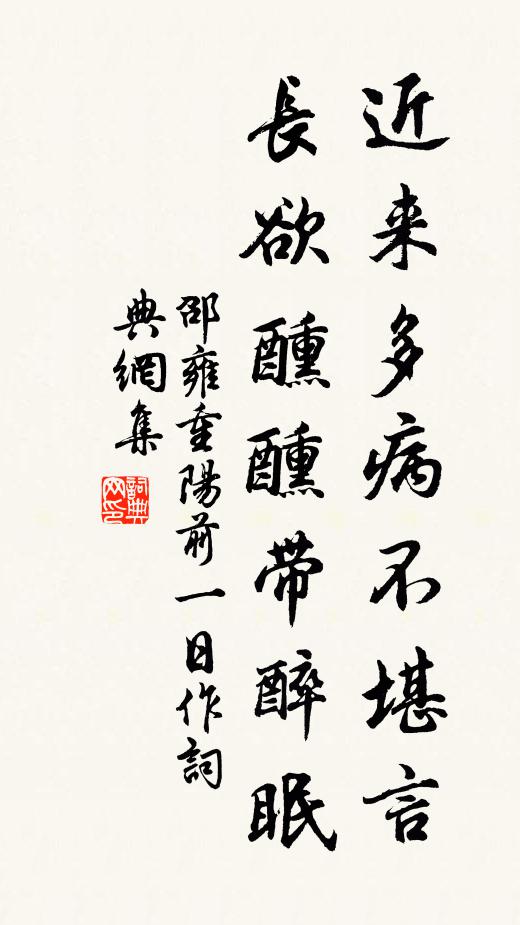 近来多病不堪言
長欲醺醺帶醉眠
邵雍重陽前一日作詞
典網集
詞典网印